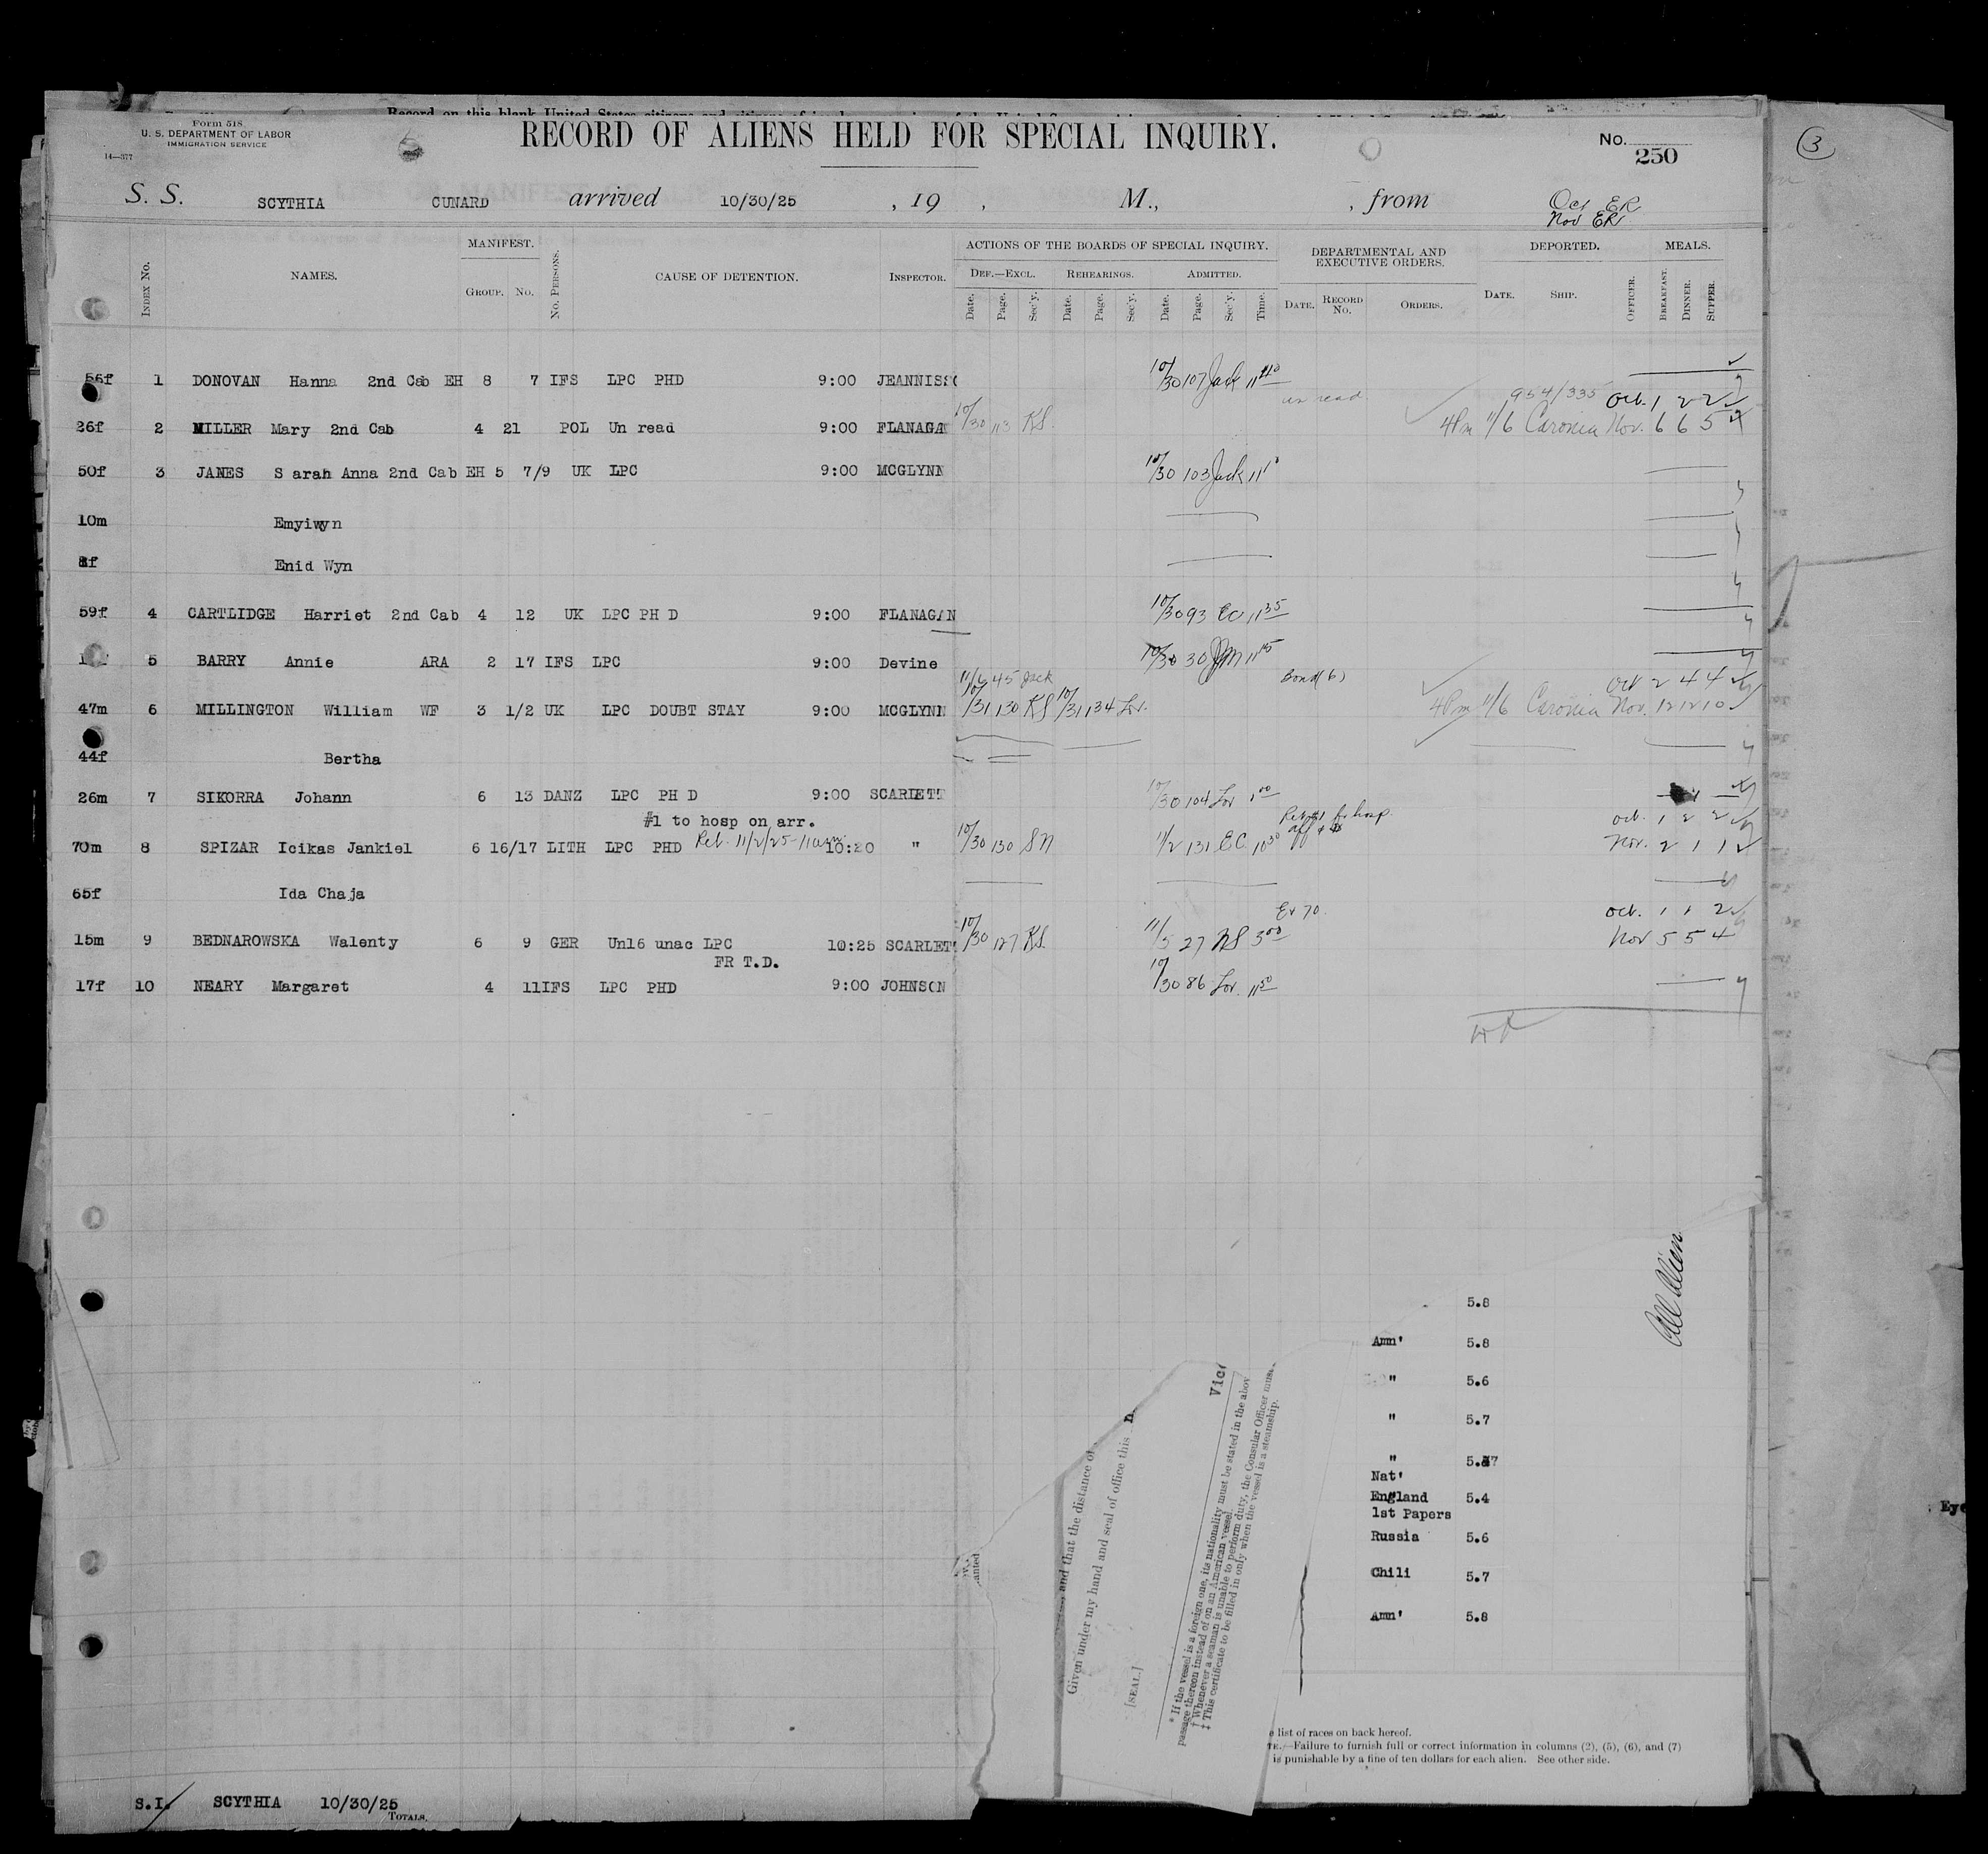 Form 518
U. S. DEPARTMENT OF LABOR
IMMIGRATION SERVICE
14—377
RECORD OF ALIENS HELD FOR SPECIAL INQUIRY.
No. 250
3
S. S. SCYTHIA CUNARD arrived 10/30/25 , 19 , M., , from
Oct ER
Nov ER
INDEX No. NAMES. MANIFEST. GROUP. NO. NO. PERSONS. CAUSE OF DETENTION. INSPECTOR. ACTIONS OF THE BOARDS OF SPECIAL INQUIRY. DEF.—EXCL. REHEARINGS. ADMITTED. DEPARTMENTAL AND EXECUTIVE ORDERS. DEPORTED. MEALS.
Date. Page. Sec'y. Date. Page. Sec'y. Date. Page. Sec'y. Time. DATE. RECORD NO. ORDERS. DATE. SHIP. OFFICER. BREAKFAST. DINNER. SUPPER.
56f 1 DONOVAN Hanna 2nd Cab EH 8 7 IFS LPC PHD 9:00 JEANNISS 10/30 107 Jack 11 40
un read 954/335 Oct. 1 2 2
26f 2 MILLER Mary 2nd Cab 4 21 POL Un read 9:00 FLANAGAN 10/30 113 KS. 4Pm 11/6 Caronia Nov. 6 6 5
50f 3 JANES S arah Anna 2nd Cab EH 5 7/9 UK LPC 9:00 MCGLYNN 10/30 103 Jack 11 10
10m Emyiwyn
8f Enid Wyn
59f 4 CARTLIDGE Harriet 2nd Cab 4 12 UK LPC PH D 9:00 FLANAGAN 10/30 93 EC 11 35
5 BARRY Annie ARA 2 17 IFS LPC 9:00 Devine 10/30 30 11 15
11/6 45 Jack Bond(6) Oct 2 4 4
47m 6 MILLINGTON William WF 3 1/2 UK LPC DOUBT STAY 9:00 MCGLYNN 10/31 130 KS 10/31 134 Lov. 4Pm 11/6 Caronia Nov. 12 12 10
44f Bertha
26m 7 SIKORRA Johann 6 13 DANZ LPC PH D 9:00 SCARLETT 10/30 104 Lov 1 00
#1 to hosp on arr. Oct. 1 2 2
70m 8 SPIZAR Icikas Jankiel 6 16/17 LITH LPC PHD Ret. 11/2/25-11am 10:20 " 10/30 130 SN 11/2 131 EC 10 30 Nov. 2 1 1
65f Ida Chaja
Ex 70 Oct. 1 1 2
15m 9 BEDNAROWSKA Walenty 6 9 GER Un16 unac LPC 10:25 SCARLET 10/30 127 KS. 11/5 27 NS 3 00 Nov 5 5 4
FR T.D.
17f 10 NEARY Margaret 4 11IFS LPC PHD 9:00 JOHNSON 10/30 86 Lov. 11 50
5.8
Amn' 5.8
" 5.6
" 5.7
" 5.7
Nat'
England 5.4
1st Papers
Russia 5.6
Chili 5.7
Amn' 5.8
and that the distance of
Given under my hand and seal of office this
[SEAL.]
* If the vessel is a foreign one, its nationality must be stated in the abov
passage thereon instead of on an American vessel.
† Whenever a seaman is unable to perform duty, the Consular Officer must
‡ This certificate to be filled in only when the vessel is a steamship.
Eye
list of races on back hereof.
TE.—Failure to furnish full or correct information in columns (2), (5), (6), and (7)
is punishable by a fine of ten dollars for each alien. See other side.
S.I. SCYTHIA 10/30/25
TOTALS.